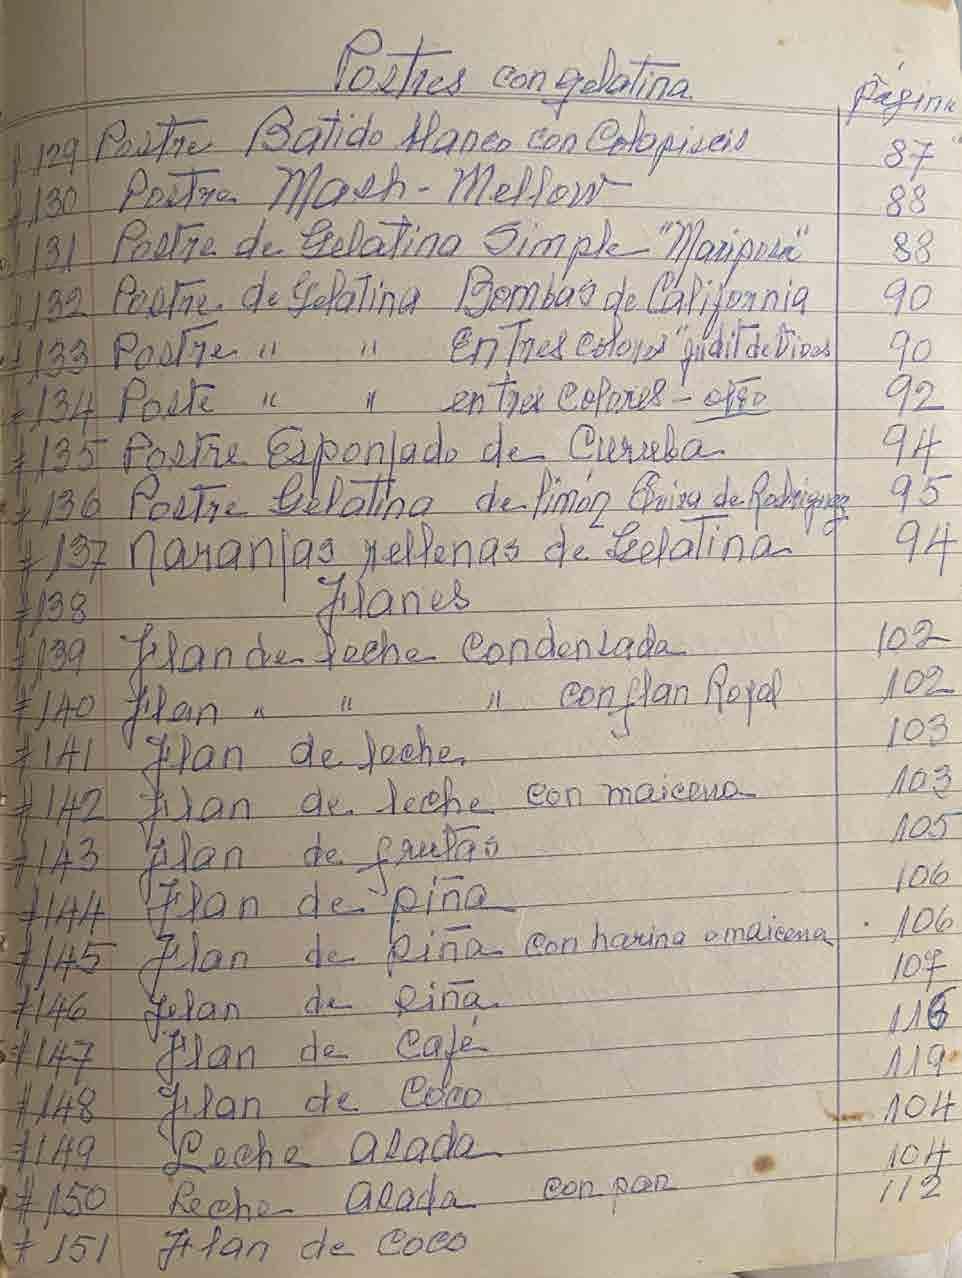 Postres con gelatina
página
# 129 Postre Batido blanco con Colapiscis 87
# 130 Postre Mash-Mellow 88
# 131 Postre de Gelatina Simple "Mariposa" 88
# 132 Postre de Gelatina Bombas de California 90
# 133 Postre " " En Tres colores 90
# 134 Poste " " en tres Colores - otro 92
# 135 Postre Esponjado de Curuba 94
# 136 Postre Gelatina de limón de Rodriguez 95
# 137 Naranjas rellenas de Gelatina 94
# 138 Flanes
# 139 Flan de leche Condensada 102
# 140 Flan " " " con flan Royal 102
# 141 Flan de leche 103
# 142 Flan de leche con maicena 103
# 143 Flan de frutas 105
# 144 Flan de piña 106
# 145 Flan de piña con harina o maicena 106
# 146 Flan de piña 107
# 147 Flan de Café 116
# 148 Flan de Coco 119
# 149 Leche asada 104
# 150 Leche asada con pan 104
# 151 Flan de coco 112